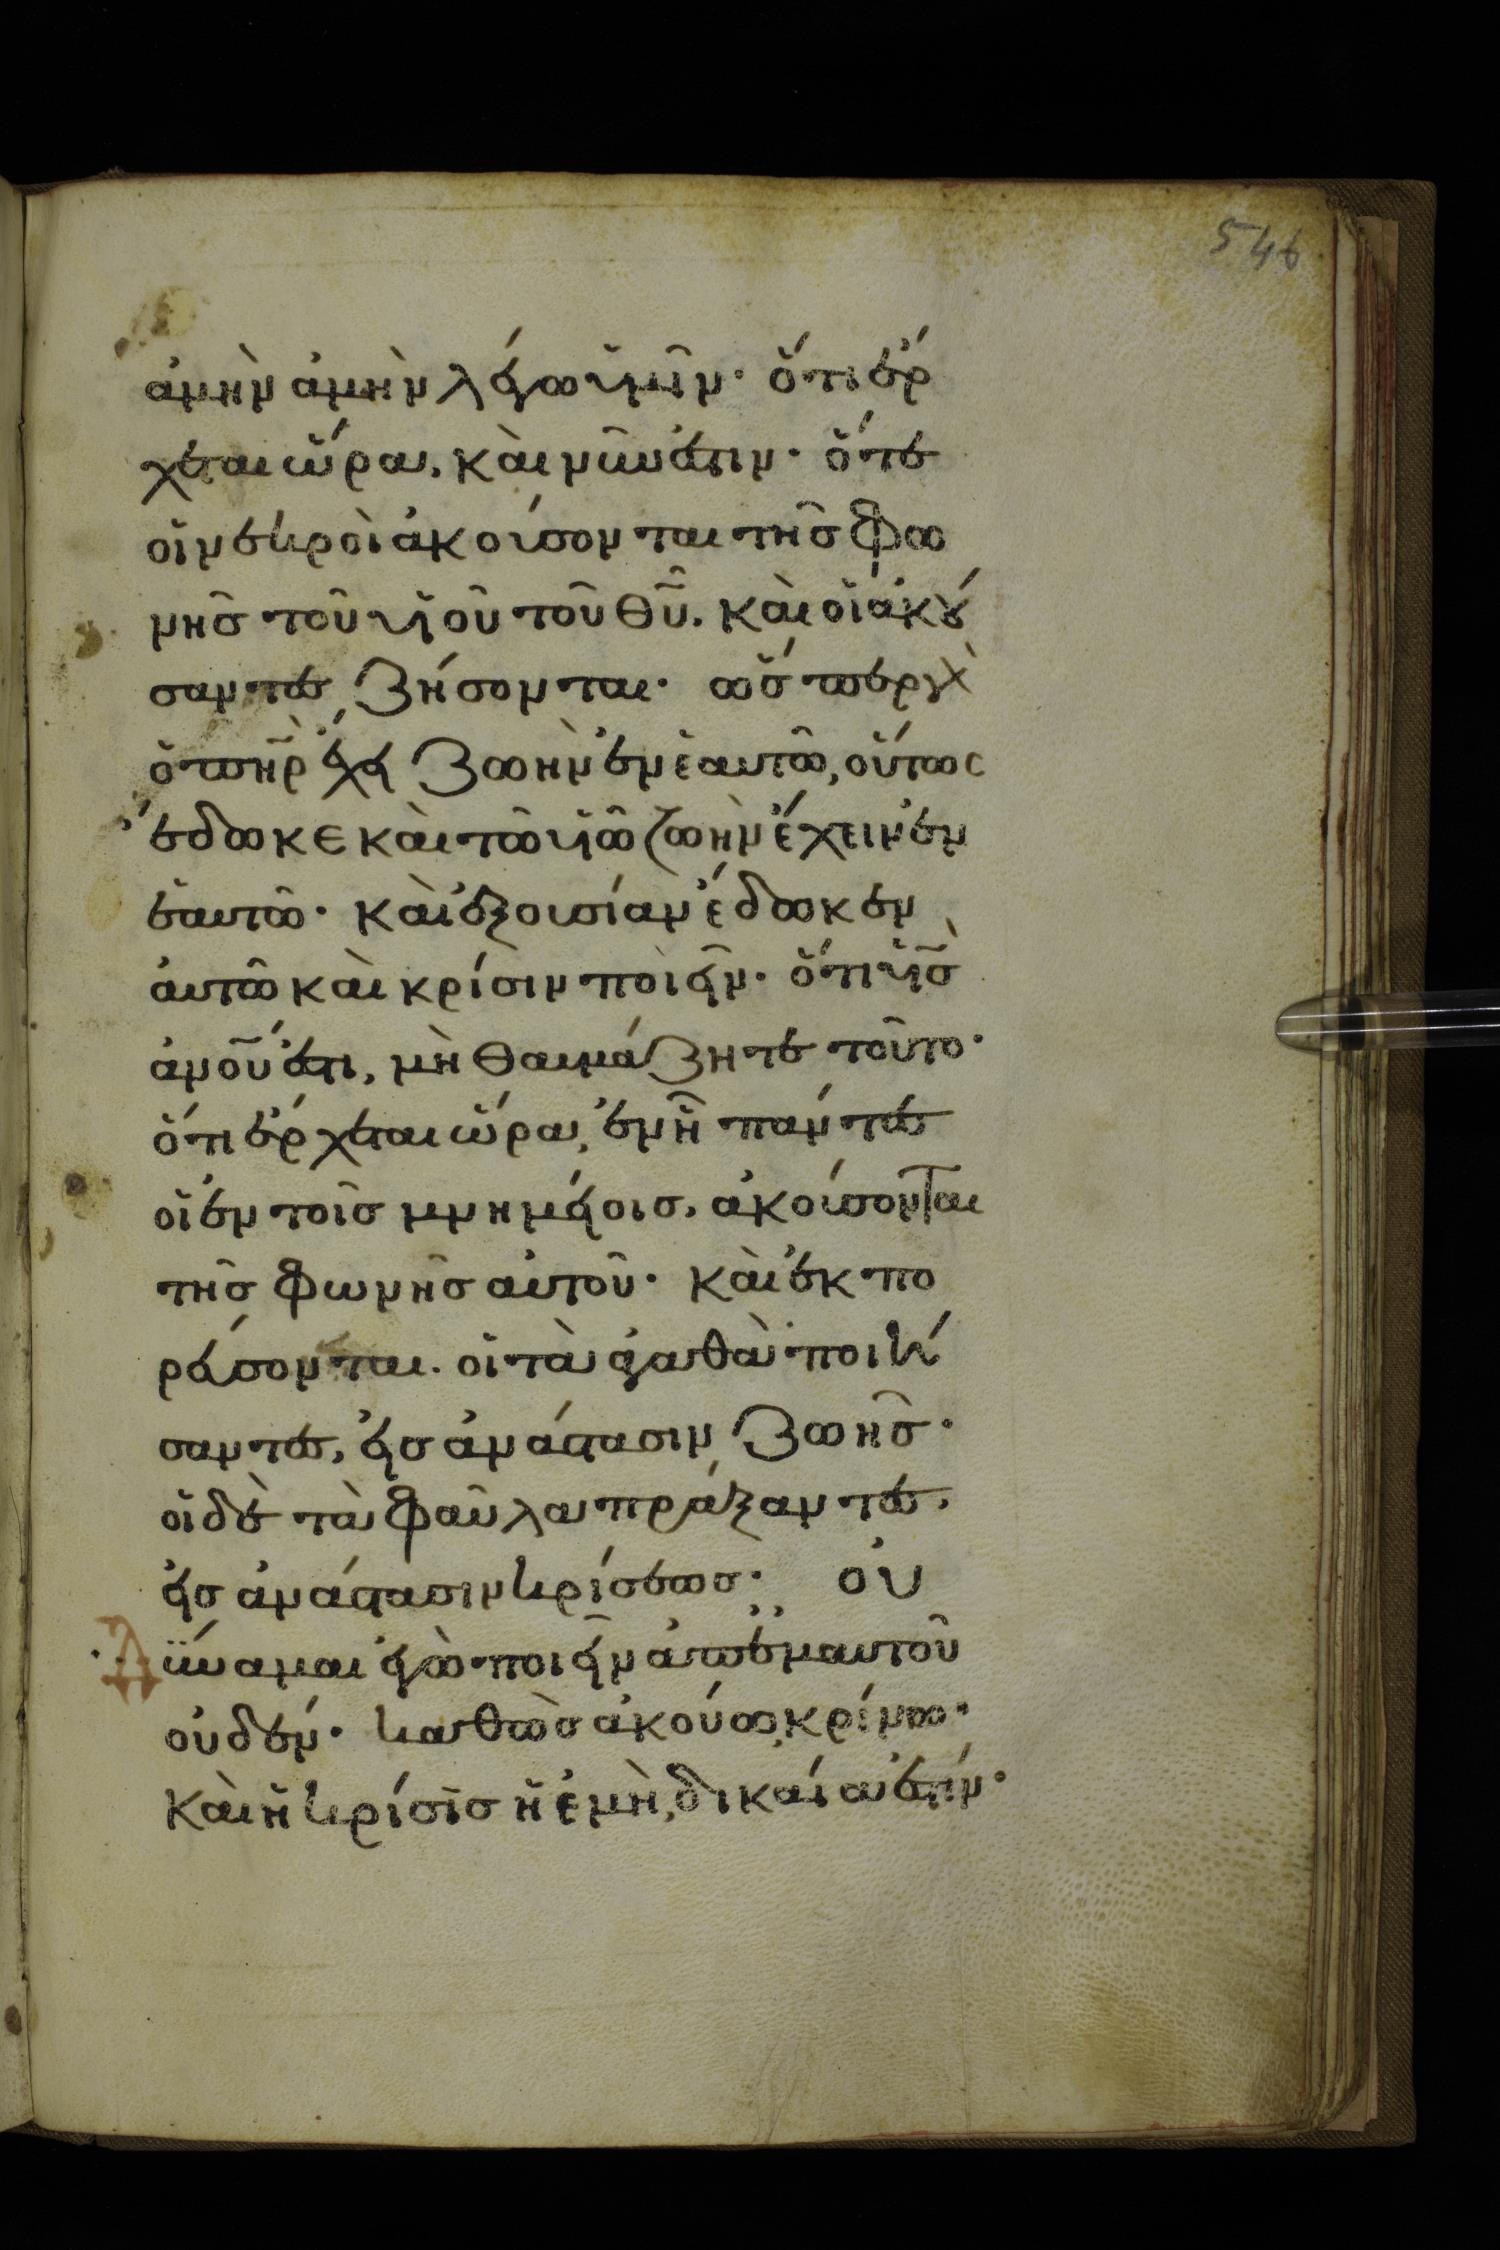 546
ἀμὴν ἀμὴν λέγω ὑμῖν· ὅτι ἔρ
χεται ὥρα, καὶ νῦν ἐστιν· ὅτε
οἱ νεκροὶ ἀκούσονται τῆς φω
νῆς τοῦ υἱοῦ τοῦ θῦ. καὶ οἱ ἀκού
σαντες ζήσονται· ὥσπερ γὰρ
ὁ πηρ ἔχει ζωὴν ἐν ἑαυτῶ, οὕτως
ἔδωκε καὶ τῶ υἱῶ ζωὴν ἔχειν ἐν
ἑαυτῶ· καὶ ἐξουσίαν ἔδωκεν
αὐτῶ καὶ κρίσιν ποιεῖν· ὅτι υἱς
ἀνοῦ ἐστι, μὴ θαυμάζητε τοῦτο·
ὅτι ἔρχεται ὥρα, ἐν ἧ πάντες
οἱ ἐν τοῖς μνημείοις, ἀκούσονται
τῆς φωνῆς αὐτοῦ· καὶ ἐκπο
ρεύσονται. οἱ τὰ ἀγαθὰ ποιή
σαντες, εἰς ἀνάστασιν ζωῆς·
οἱ δὲ τὰ φαῦλα πράξαντες,
εἰς ἀνάστασιν κρίσεως· οὐ
Δύναμαι ἐγὼ ποιεῖν ἀπ' ἐμαυτοῦ
οὐδέν· καθὼς ἀκούω, κρίνω·
καὶ ἡ κρίσις ἡ ἐμὴ, δικαία ἐστίν·